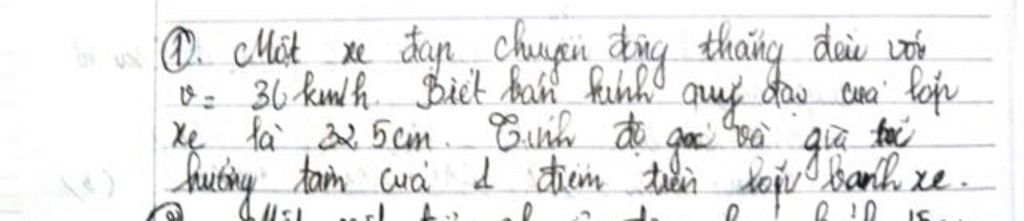 ①. Một xe đạp chuyển động thẳng đều với
v = 36 km/h. Biết bán kính quỹ đạo của lốp
xe là 32,5cm. Tính độ góc và gia tốc
hướng tâm của 1 điểm trên lốp bánh xe.